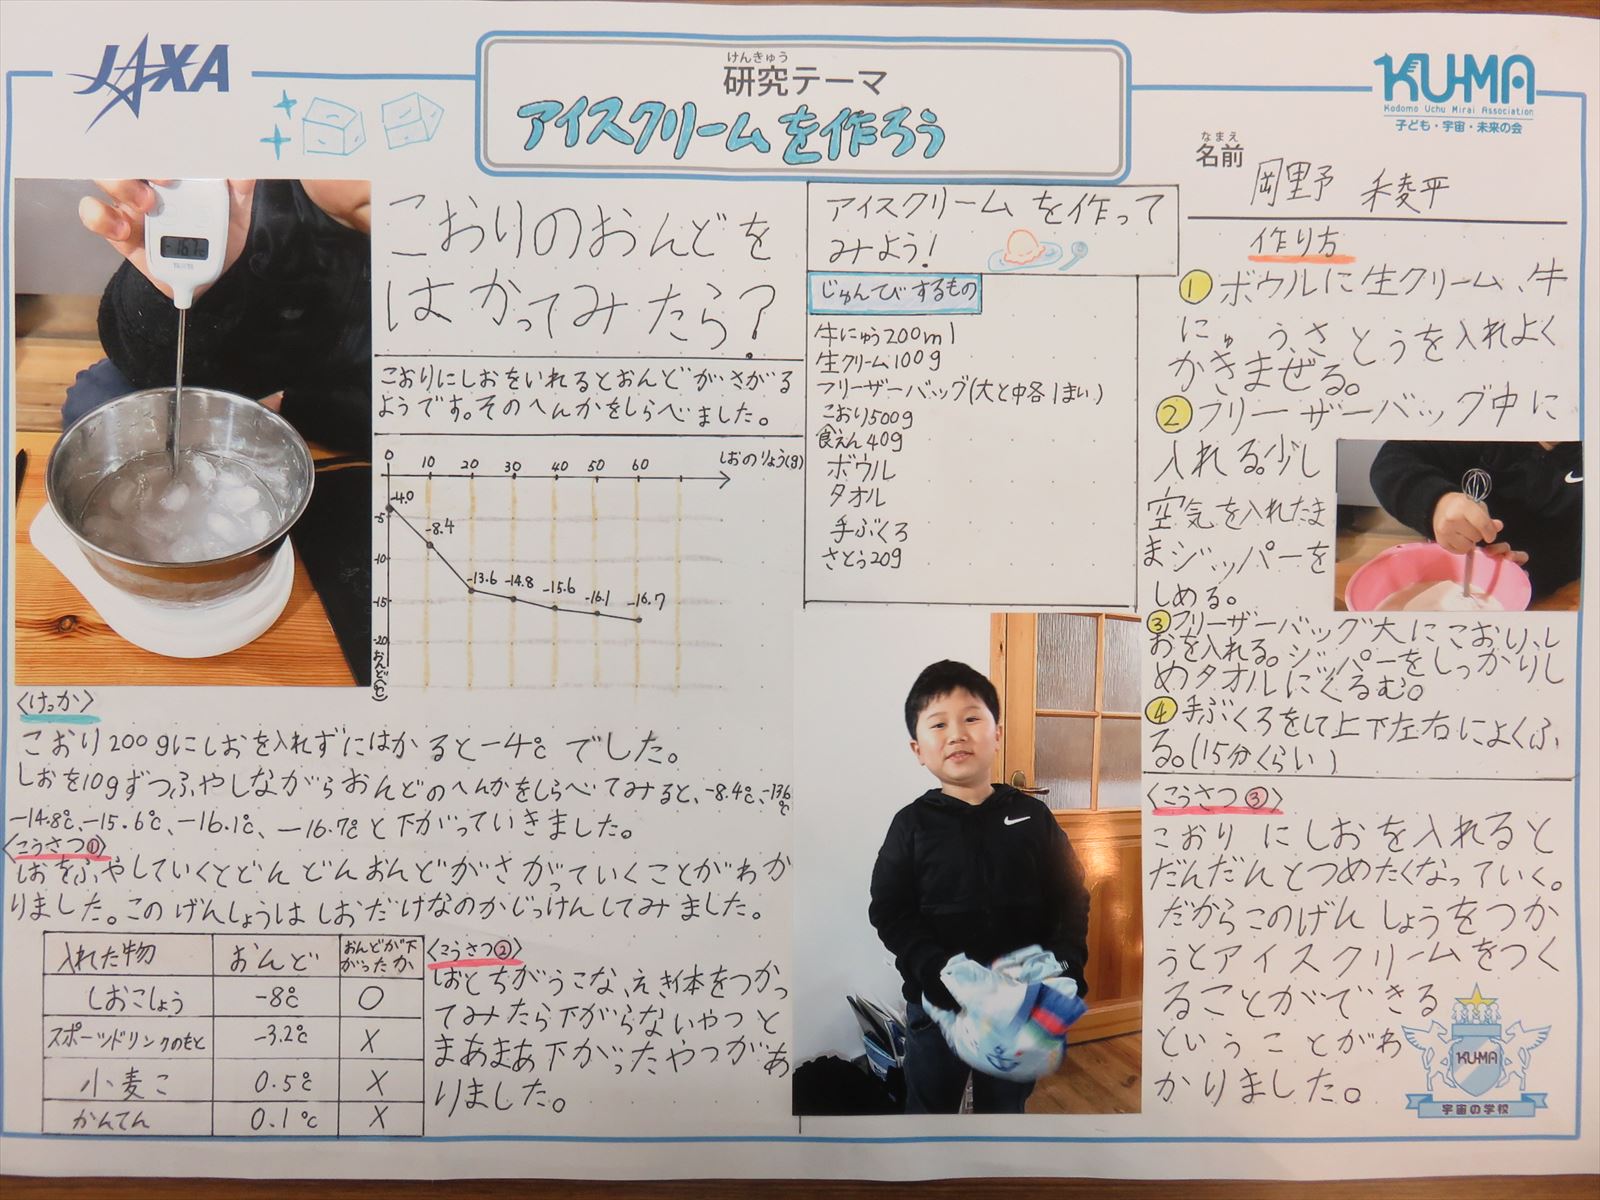 JAXA
けんきゅう
研究テーマ
アイスクリームを作ろう
KU-MA
Kodomo Uchu Mirai Association
子ども・宇宙・未来の会
なまえ
名前
岡里予 禾稜平
こおりのおんどを
はかってみたら?
こおりにしおをいれるとおんどがさがる
ようです。そのへんかをしらべました。
0 10 20 30 40 50 60 しおのりょう(g)
-4.0
-5
-8.4
-10
-13.6 -14.8 -15.6 -16.1 -16.7
-15
-20
おんど(℃)
-16.7℃
〈けっか〉
こおり200gにしおを入れずにはかると-4℃でした。
しおを10gずつふやしながらおんどのへんかをしらべてみると、-8.4℃、-13.6℃
-14.8℃、-15.6℃、-16.1℃、-16.7℃と下がっていきました。
〈こうさつ①〉
しおをふやしていくとどんどんおんどがさがっていくことがわか
りました。このげんしょうはしおだけなのかじっけんしてみました。
入れた物 おんど おんどが下がったか
しおこしょう -8℃ ○
スポーツドリンクのもと -3.2℃ X
小麦こ 0.5℃ X
かんてん 0.1℃ X
〈こうさつ②〉
しおとちがうこな、えき体をつかっ
てみたら下がらないやつと
まあまあ下がったやつがあ
りました。
アイスクリームを作って
みよう!
じゅんびするもの
牛にゅう200ml
生クリーム100g
フリーザーバッグ(大と中各1まい)
こおり500g
食えん40g
ボウル
タオル
手ぶくろ
さとう20g
作り方
①ボウルに生クリーム、牛
にゅう、さとうを入れよく
かきまぜる。
②フリーザーバッグ中に
入れる。少し
空気を入れたま
まジッパーを
しめる。
③フリーザーバッグ大にこおり、し
おを入れる。ジッパーをしっかりし
めタオルにくるむ。
④手ぶくろをして上下左右によくふ
る。(15分くらい)
〈こうさつ③〉
こおりにしおを入れると
だんだんとつめたくなっていく。
だからこのげんしょうをつか
うとアイスクリームをつく
ることができる
ということがわ
かりました。
KU-MA
宇宙の学校